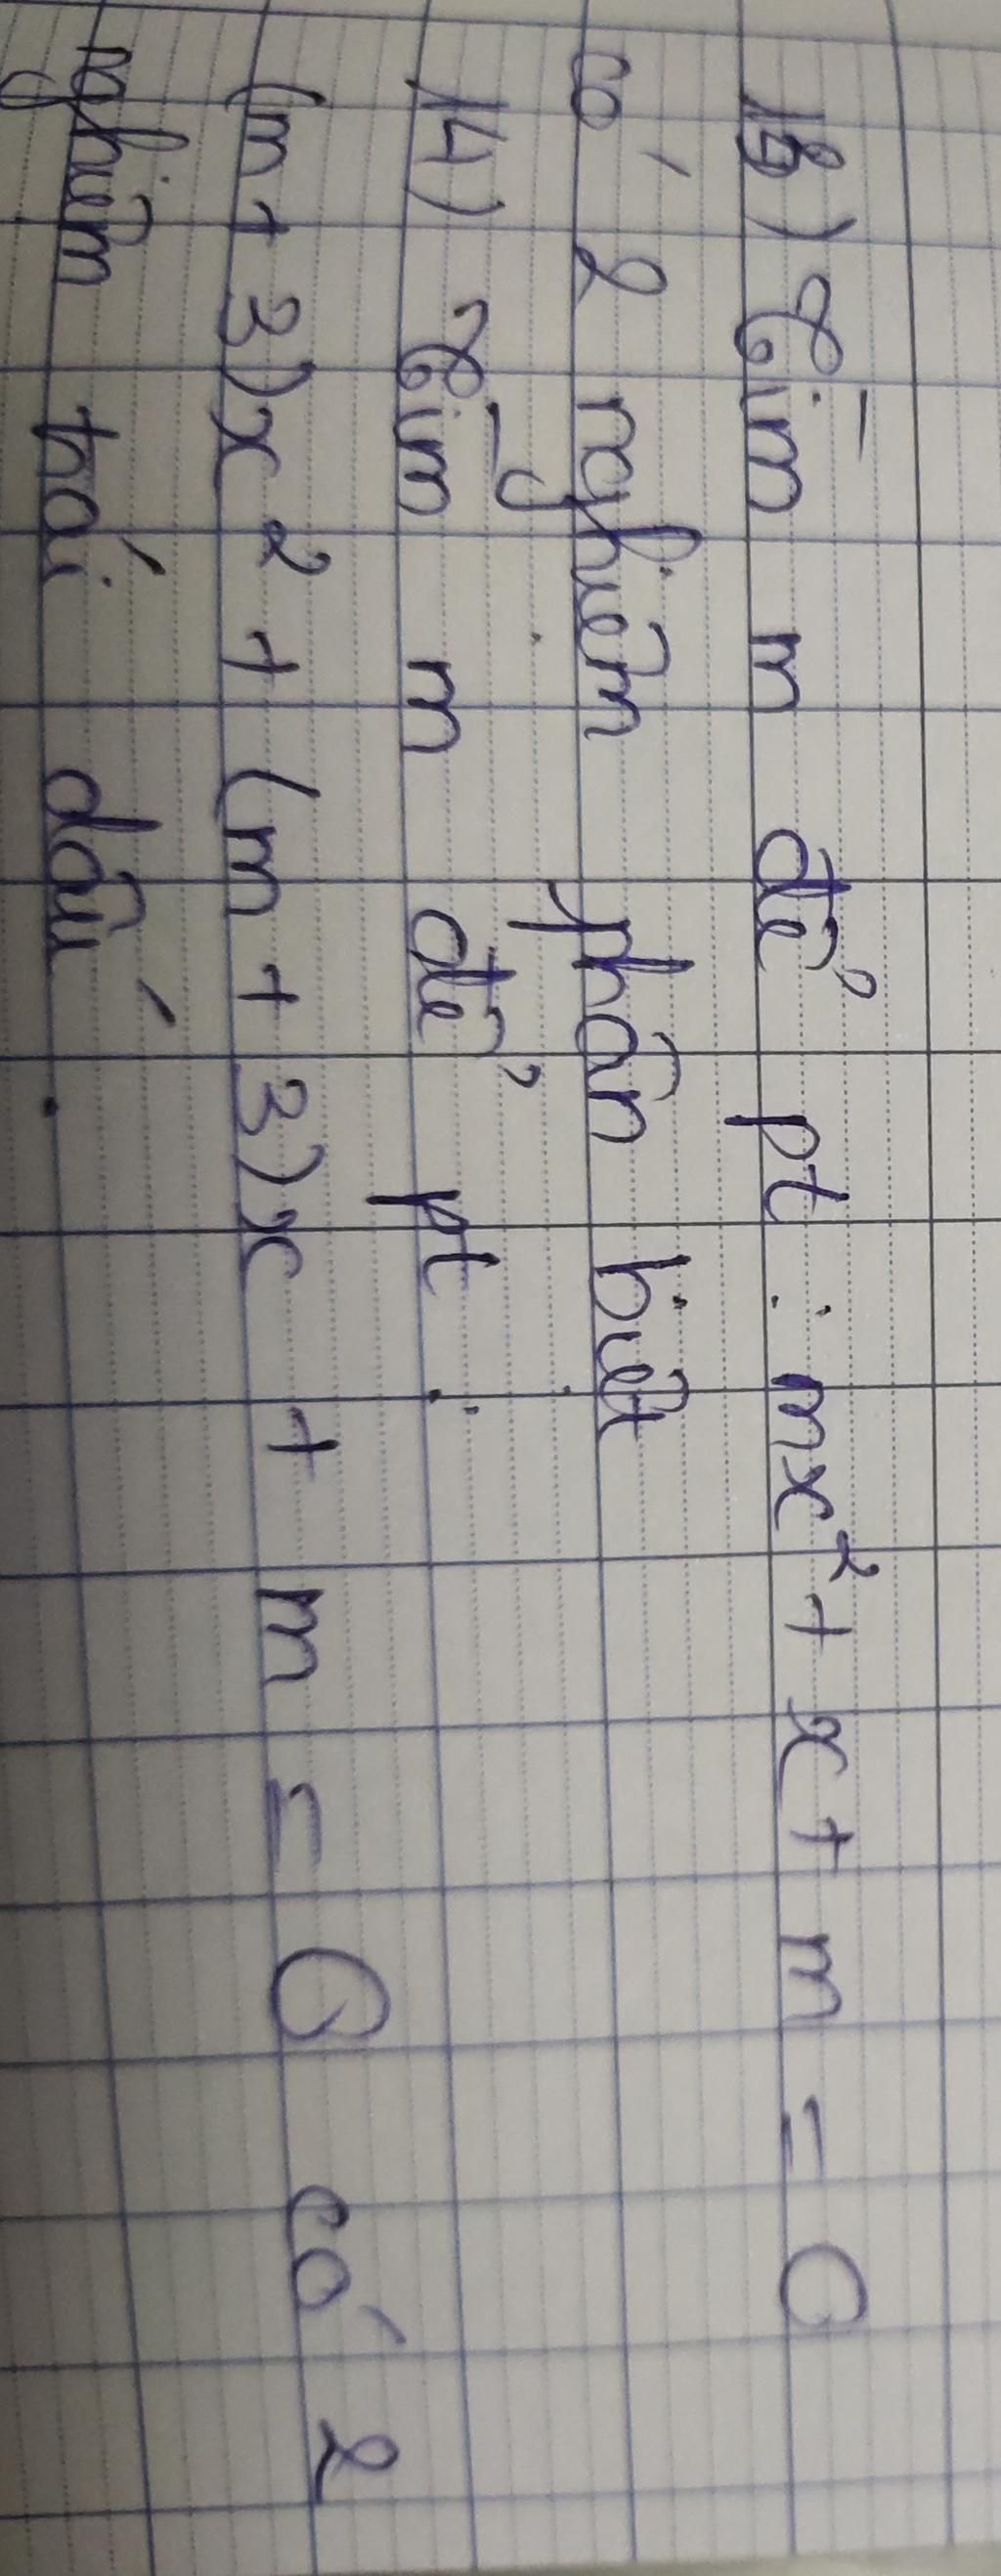 13) Tìm m để pt : mx² + x + m = 0
có 2 nghiệm phân biệt
14) Tìm m để pt :
(m + 3)x² + (m + 3)x + m = 0 có 2
nghiệm trái dấu.